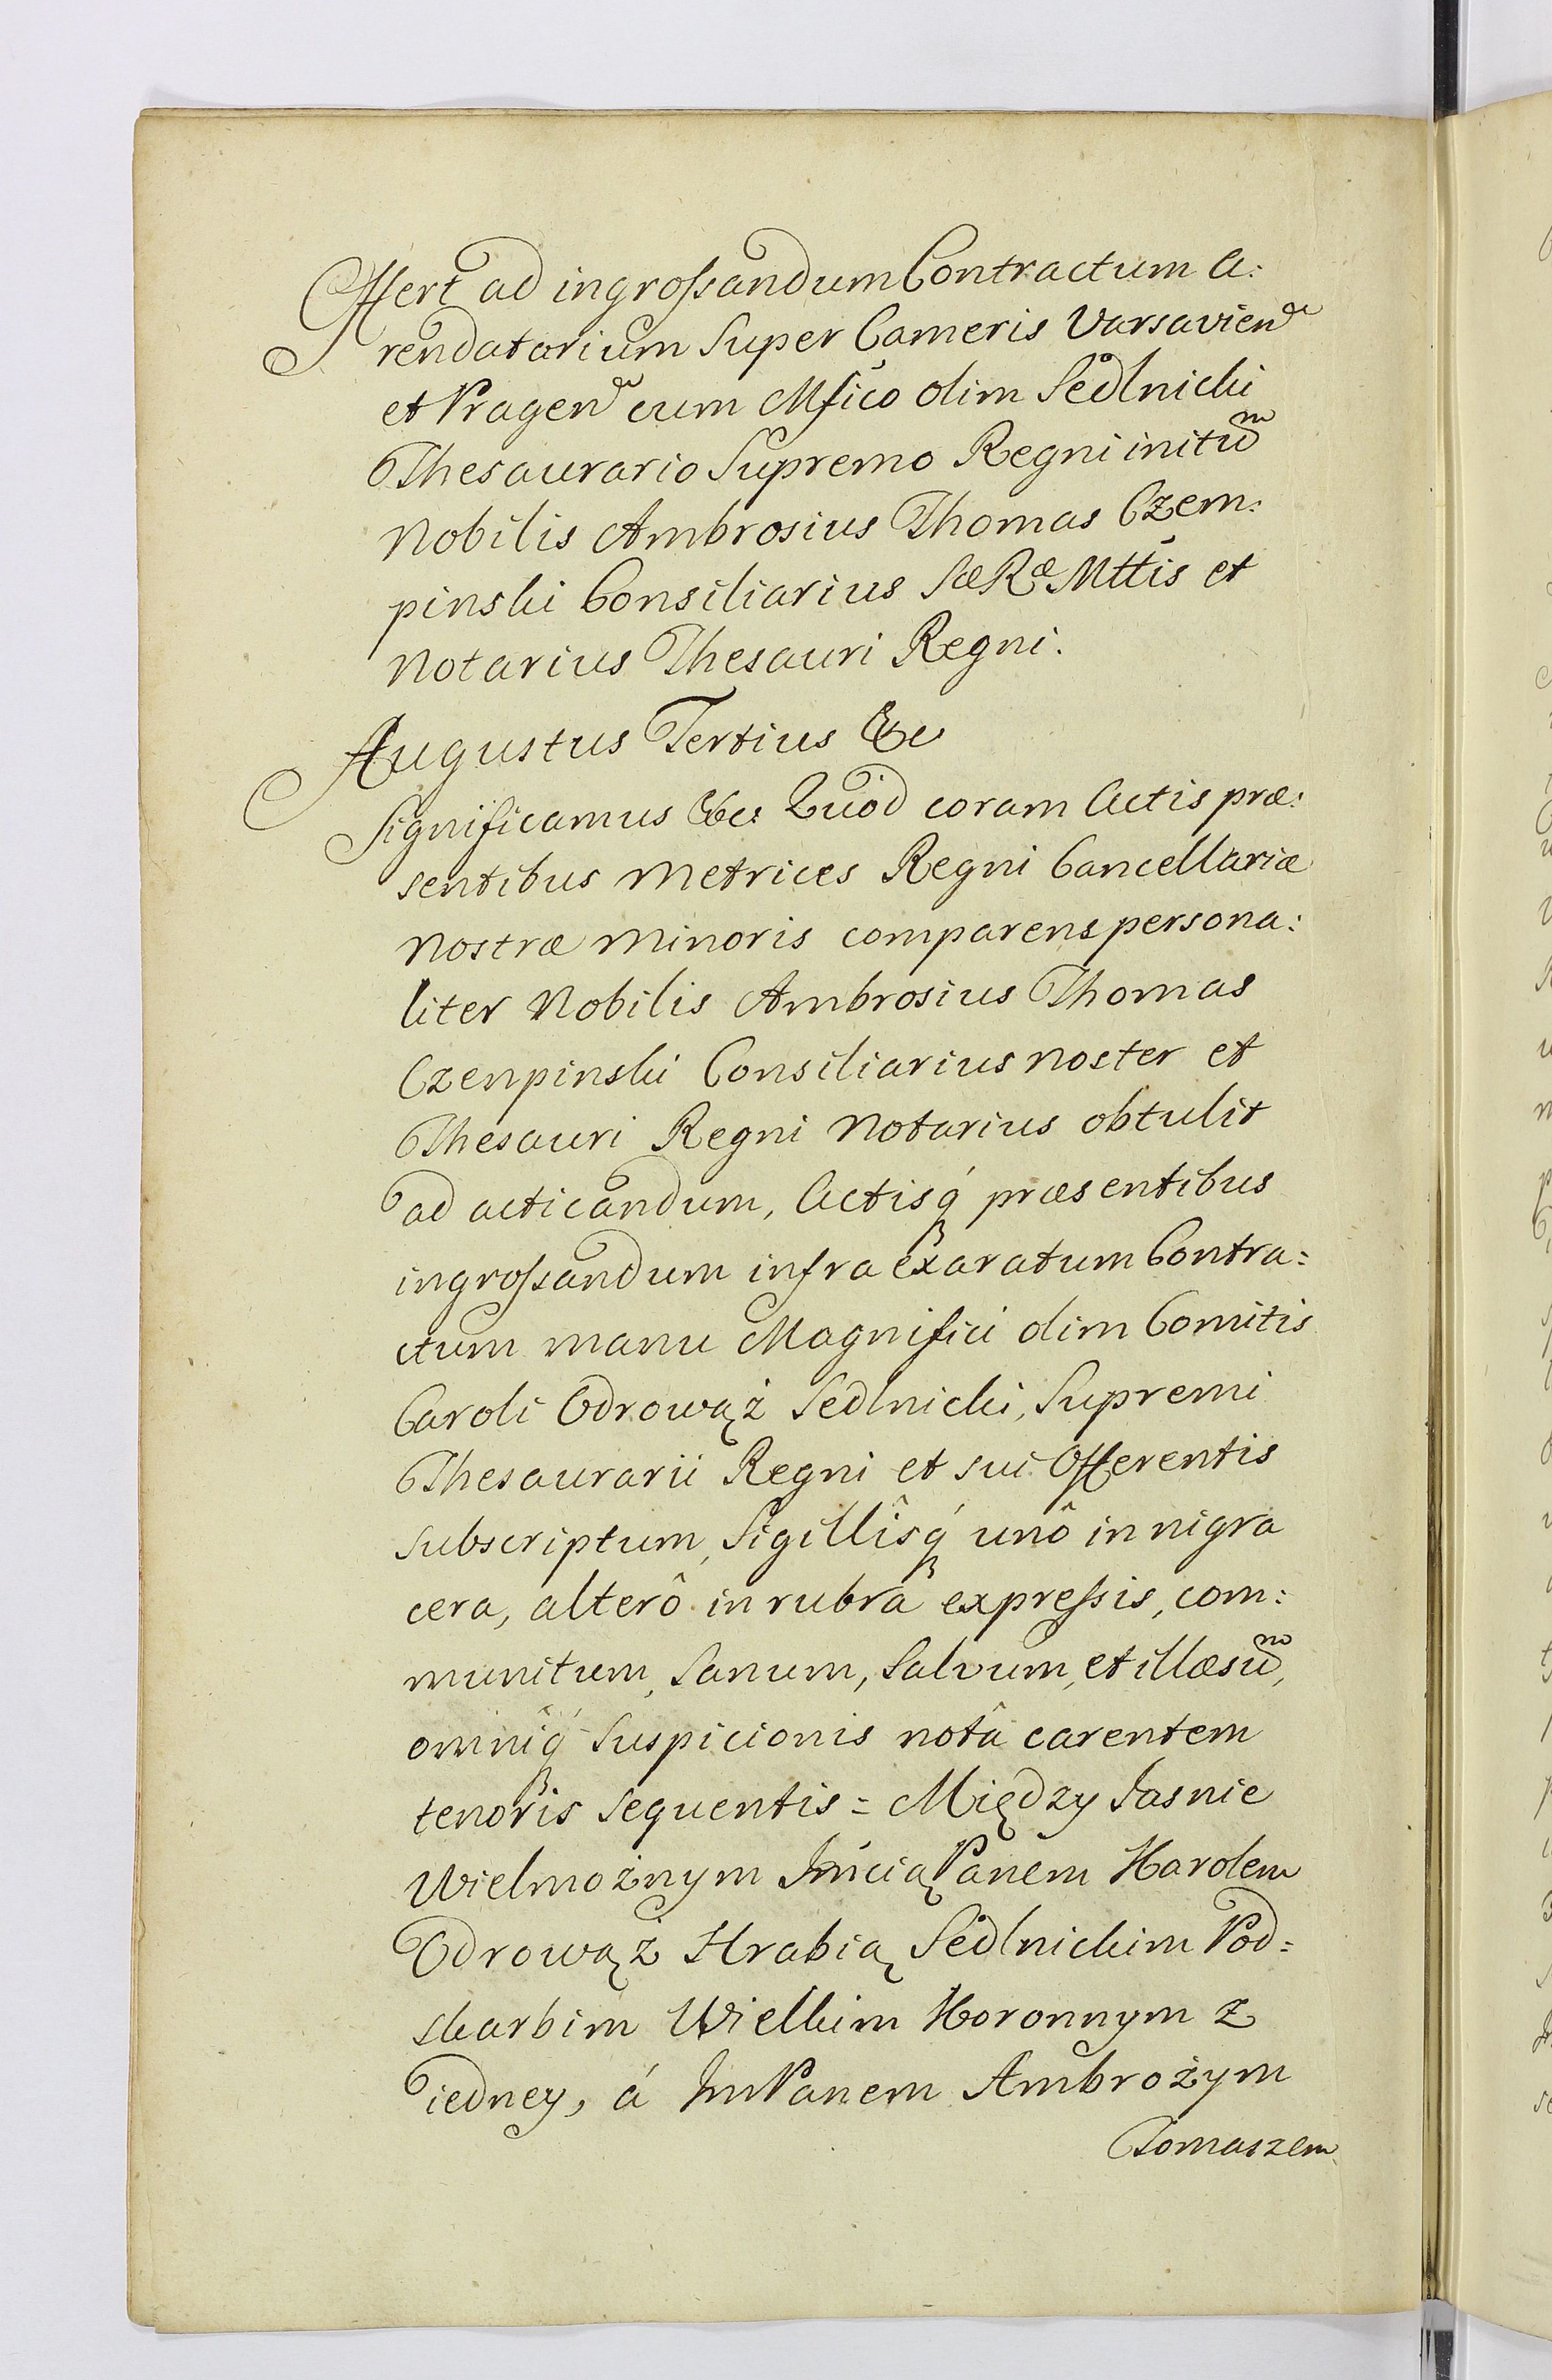 Offert ad ingrossandum Contractum A:
rendatorium Super Cameris Varsavien
et Pragen cum Mfico olim Sedlnicki
Thesaurario Supremo Regni initum
Nobilis Ambrosius Thomas Czem:
pinski Consiliarius SæRæMttis et
Notarius Thesauri Regni.
Augustus Tertius &c
Significamus &c: Quod coram Actis præ:
sentibus Metrices Regni Cancellariæ
Nostræ Minoris comparens persona:
liter Nobilis Ambrosius Thomas
Czenpinski Consiliarius Noster et
Thesauri Regni Notarius obtulit
ad acticandum, Actisq́ præsentibus
ingrossandum infra exaratum Contra=
ctum manu Magnifici olim Comitis
Caroli Odrowąż Sedlnicki, Supremi
Thesaurarii Regni et sui Offerentis
subscriptum, Sigillîsq́ unô in nigra
cera, alterô in rubra expressis, com:
munitum, Sanum, Salvum, et illæsum,
omnîq́ Suspicionis notâ carentem
tenoris sequentis = Między Jasnie
Wielmożnym Jmcią Panem Karolem
Odrowąż Hrabią Sedlnickim Pod=
skarbim Wielkim Koronnym z
iedney, á JmPanem Ambrożym
Tomaszem